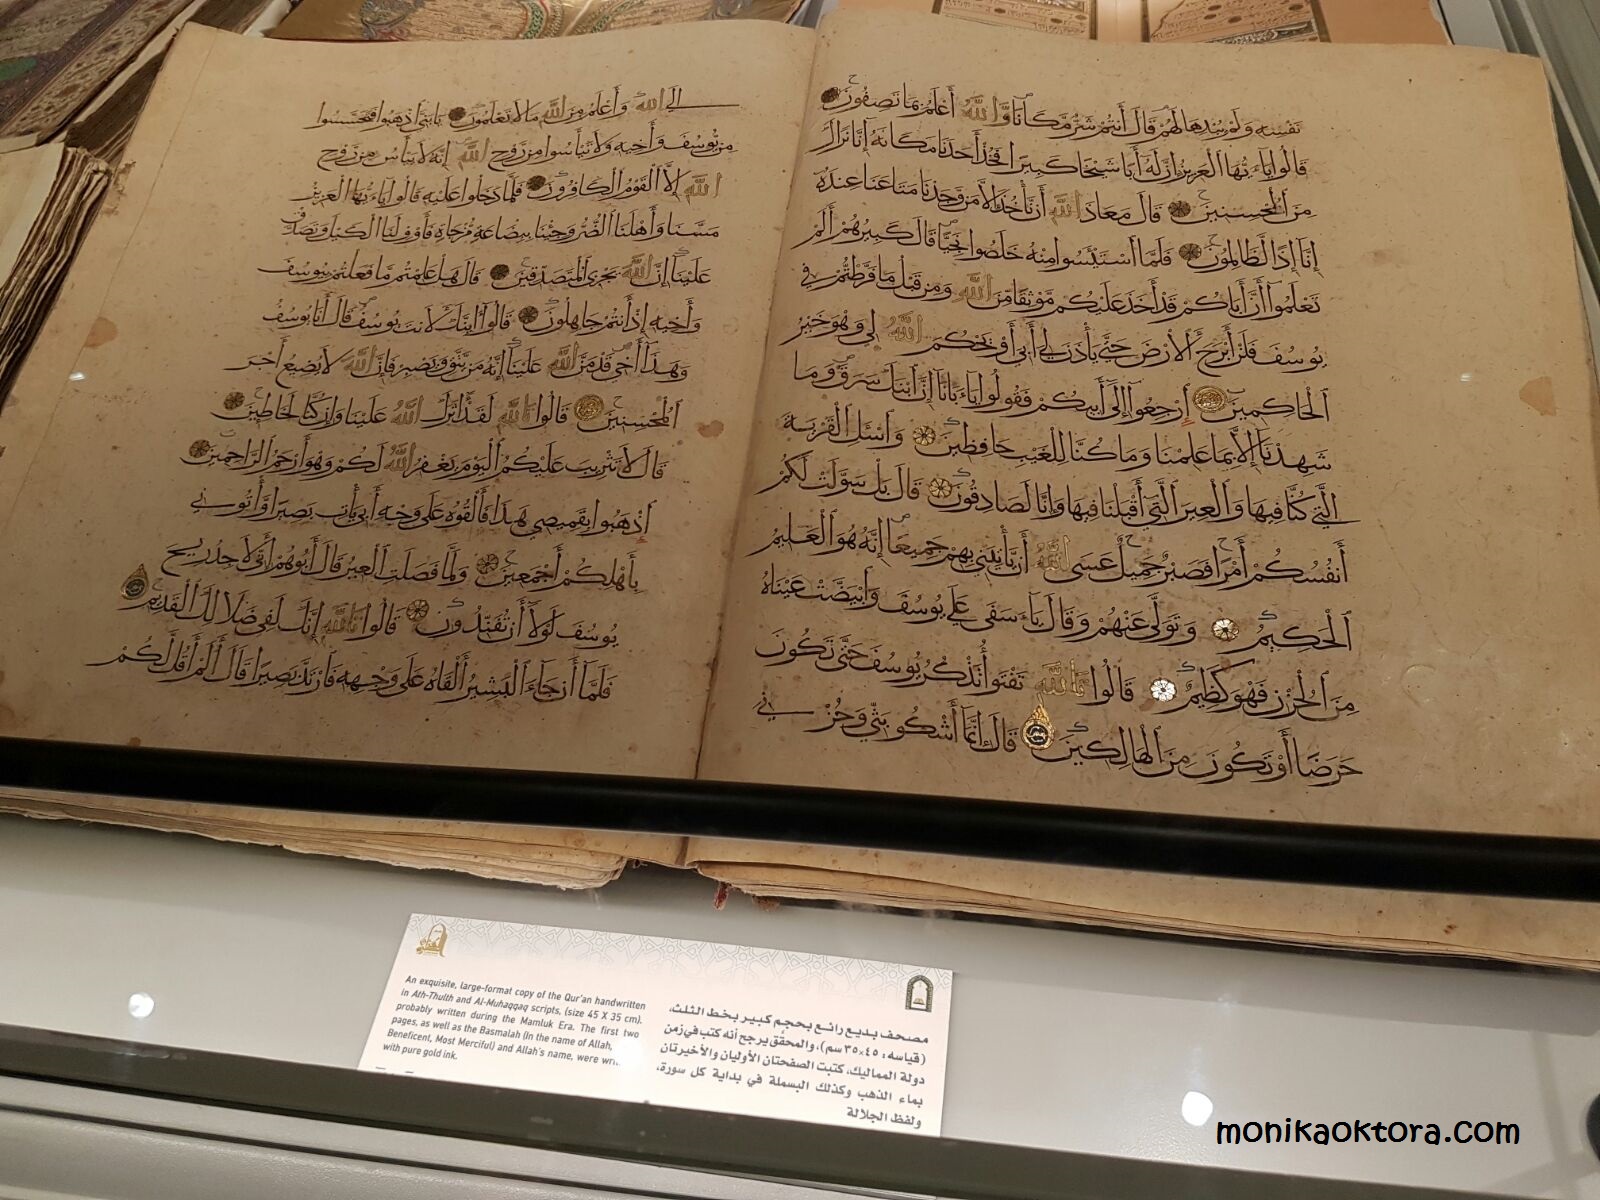 نَفْسِهِ وَلَمْ يُبْدِهَا لَهُمْ قَالَ أَنتُمْ شَرٌّ مَّكَانًا وَاللَّهُ أَعْلَمُ بِمَا تَصِفُونَ
قَالُوا يَاءَيُّهَا الْعَزِيزُ إِنَّ لَهُ أَبًا شَيْخًا كَبِيرًا فَخُذْ أَحَدَنَا مَكَانَهُ إِنَّا نَرَاكَ
مِنَ الْمُحْسِنِينَ قَالَ مَعَاذَ اللَّهِ أَن نَّأْخُذَ إِلَّا مَن وَجَدْنَا مَتَاعَنَا عِندَهُ
إِنَّا إِذًا لَّظَالِمُونَ فَلَمَّا اسْتَيْئَسُوا مِنْهُ خَلَصُوا نَجِيًّا قَالَ كَبِيرُهُمْ أَلَمْ
تَعْلَمُوا أَنَّ أَبَاكُمْ قَدْ أَخَذَ عَلَيْكُم مَّوْثِقًا مِّنَ اللَّهِ وَمِن قَبْلُ مَا فَرَّطتُمْ فِي
يُوسُفَ فَلَنْ أَبْرَحَ الْأَرْضَ حَتَّى يَأْذَنَ لِي أَبِي أَوْ يَحْكُمَ اللَّهُ لِي وَهُوَ خَيْرُ
الْحَاكِمِينَ إِرْجِعُوا إِلَى أَبِيكُمْ فَقُولُوا يَاءَبَانَا إِنَّ ابْنَكَ سَرَقَ وَمَا
شَهِدْنَا إِلَّا بِمَا عَلِمْنَا وَمَا كُنَّا لِلْغَيْبِ حَافِظِينَ وَاسْئَلِ الْقَرْيَةَ
الَّتِي كُنَّا فِيهَا وَالْعِيرَ الَّتِي أَقْبَلْنَا فِيهَا وَإِنَّا لَصَادِقُونَ قَالَ بَلْ سَوَّلَتْ لَكُمْ
أَنفُسُكُمْ أَمْرًا فَصَبْرٌ جَمِيلٌ عَسَى اللَّهُ أَن يَأْتِيَنِي بِهِمْ جَمِيعًا إِنَّهُ هُوَ الْعَلِيمُ
الْحَكِيمُ وَتَوَلَّى عَنْهُمْ وَقَالَ يَاءَسَفَى عَلَى يُوسُفَ وَابْيَضَّتْ عَيْنَاهُ
مِنَ الْحُزْنِ فَهُوَ كَظِيمٌ قَالُوا تَاللَّهِ تَفْتَؤُا تَذْكُرُ يُوسُفَ حَتَّى تَكُونَ
حَرَضًا أَوْ تَكُونَ مِنَ الْهَالِكِينَ قَالَ إِنَّمَا أَشْكُو بَثِّي وَحُزْنِي
إِلَى اللَّهِ وَأَعْلَمُ مِنَ اللَّهِ مَا لَا تَعْلَمُونَ يَابَنِيَّ اذْهَبُوا فَتَحَسَّسُوا
مِن يُوسُفَ وَأَخِيهِ وَلَا تَيْأَسُوا مِن رَّوْحِ اللَّهِ إِنَّهُ لَا يَيْأَسُ مِن رَّوْحِ
اللَّهِ إِلَّا الْقَوْمُ الْكَافِرُونَ فَلَمَّا دَخَلُوا عَلَيْهِ قَالُوا يَاءَيُّهَا الْعَزِيزُ
مَسَّنَا وَأَهْلَنَا الضُّرُّ وَجِئْنَا بِبِضَاعَةٍ مُّزْجَاةٍ فَأَوْفِ لَنَا الْكَيْلَ وَتَصَدَّقْ
عَلَيْنَا إِنَّ اللَّهَ يَجْزِي الْمُتَصَدِّقِينَ قَالَ هَلْ عَلِمْتُم مَّا فَعَلْتُم بِيُوسُفَ
وَأَخِيهِ إِذْ أَنتُمْ جَاهِلُونَ قَالُوا أَئِنَّكَ لَأَنتَ يُوسُفُ قَالَ أَنَا يُوسُفُ
وَهَذَا أَخِي قَدْ مَنَّ اللَّهُ عَلَيْنَا إِنَّهُ مَن يَتَّقِ وَيَصْبِرْ فَإِنَّ اللَّهَ لَا يُضِيعُ أَجْرَ
الْمُحْسِنِينَ قَالُوا تَاللَّهِ لَقَدْ ءَاثَرَكَ اللَّهُ عَلَيْنَا وَإِن كُنَّا لَخَاطِئِينَ
قَالَ لَا تَثْرِيبَ عَلَيْكُمُ الْيَوْمَ يَغْفِرُ اللَّهُ لَكُمْ وَهُوَ أَرْحَمُ الرَّاحِمِينَ
إِذْهَبُوا بِقَمِيصِي هَذَا فَأَلْقُوهُ عَلَى وَجْهِ أَبِي يَأْتِ بَصِيرًا وَأْتُونِي
بِأَهْلِكُمْ أَجْمَعِينَ وَلَمَّا فَصَلَتِ الْعِيرُ قَالَ أَبُوهُمْ إِنِّي لَأَجِدُ رِيحَ
يُوسُفَ لَوْلَا أَن تُفَنِّدُونِ قَالُوا تَاللَّهِ إِنَّكَ لَفِي ضَلَالِكَ الْقَدِيمِ
فَلَمَّا أَن جَاءَ الْبَشِيرُ أَلْقَاهُ عَلَى وَجْهِهِ فَارْتَدَّ بَصِيرًا قَالَ أَلَمْ أَقُل لَّكُمْ
An exquisite, large-format copy of the Qur'an handwritten
in Ath-Thulth and Al-Muhaqqaq scripts, (size 45 X 35 cm).
probably written during the Mamluk Era. The first two
pages, as well as the Basmalah (In the name of Allah,
Beneficent, Most Merciful) and Allah's name, were
with pure gold ink.
مصحف بديع رائع بحجم كبير بخط الثلث،
(قياسه: ٤٥×٣٥ سم)، والمحقق يرجح أنه كتب في زمن
دولة المماليك، كتبت الصفحتان الأوليان والأخيرتان
بماء الذهب وكذلك البسملة في بداية كل سورة،
ولفظ الجلالة
monikaoktora.com